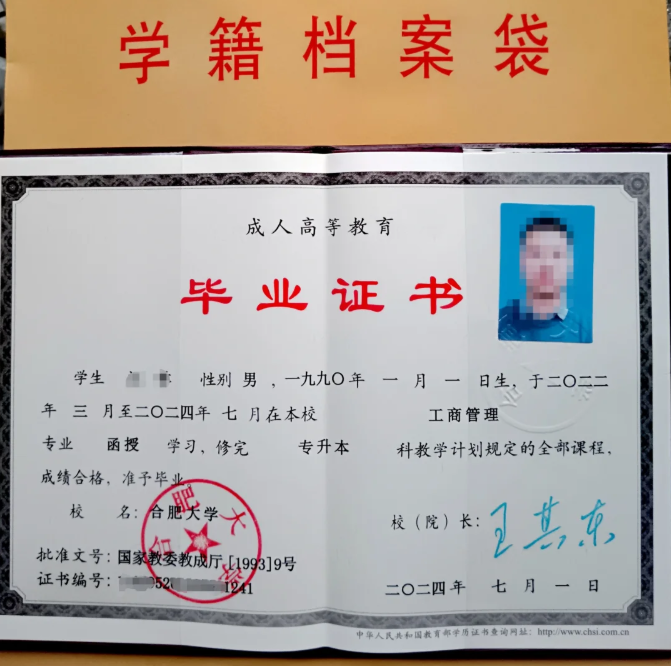 学籍档案袋
成人高等教育
毕业证书
学生 性别 男 ，一九九〇年 一 月 一 日生，于二〇二二
年 三 月至二〇二四年 七 月在本校 工商管理
专业 函授 学习，修完 专升本 科教学计划规定的全部课程，
成绩合格，准予毕业。
校 名：合肥大学
校（院）长：王其东
批准文号：国家教委教成厅[1993]9号
证书编号： 052 1241
二〇二四年 七 月 一 日
合肥大学
中华人民共和国教育部学历证书查询网址：http://www.chsi.com.cn